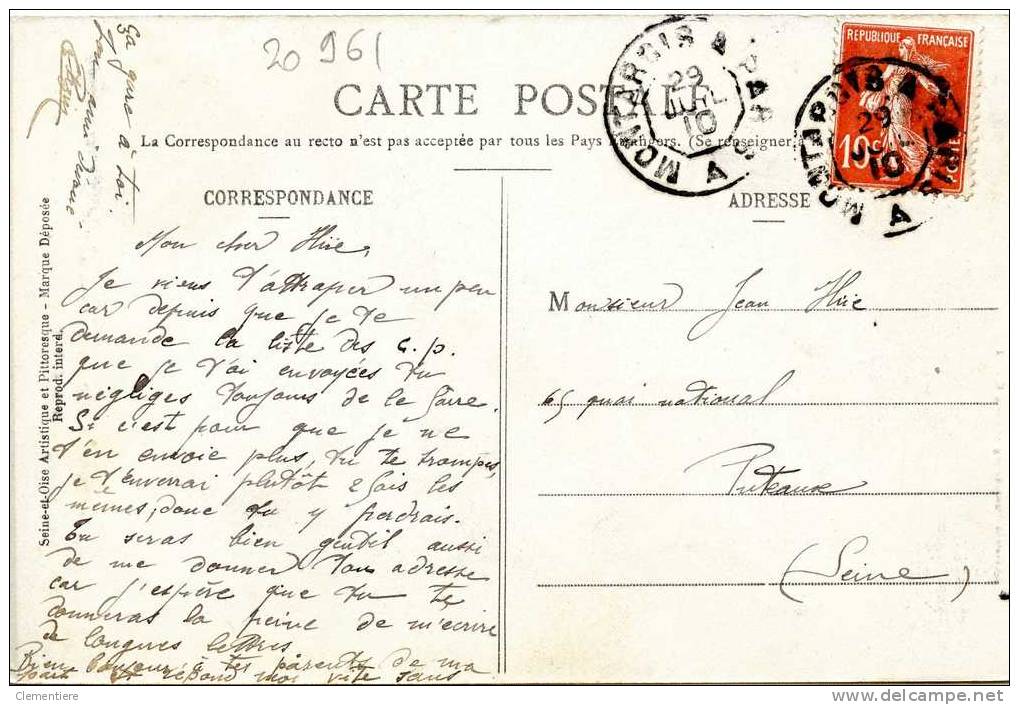 20961
CARTE POSTALE
La Correspondance au recto n'est pas acceptée par tous les Pays Étrangers. (Se renseigner à
CORRESPONDANCE
ADRESSE
Seine-et-Oise Artistique et Pittoresque - Marque Déposée
Reprod. interd.
REPUBLIQUE FRANÇAISE
10c POSTES
MONTARGIS A PARIS
29
JUIL
10
MONTARGIS A PARIS
29
10
Mon cher Hue,
Je viens t'attraper un peu
car depuis que je te
demande la liste des c.p.
que je t'ai envoyées tu
négliges toujours de le faire.
Si c'est pour que je ne
t'en envoie plus, tu te trompes,
je t'enverrai plutôt 2 fois les
mêmes, donc tu y perdrais.
Tu seras bien gentil aussi
de me donner ton adresse
car j'espère que tu te
donneras la peine de m'écrire
de longues lettres
Bien bonjour à tes parents de ma
part et répond moi vite sans
ça gare à toi.
Ton ami
Monsieur Jean Hue
65 quai national
Puteaux
(Seine)
Clementiere
delcampe.net